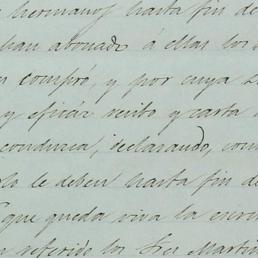 hermanos hasta fin de
han abonado á ellas los
compró, y por cuya
y eficáz recibo y carta
conducia, declarando, com
le deben hasta fin de
que queda viva la escri
referido los Sres Martin